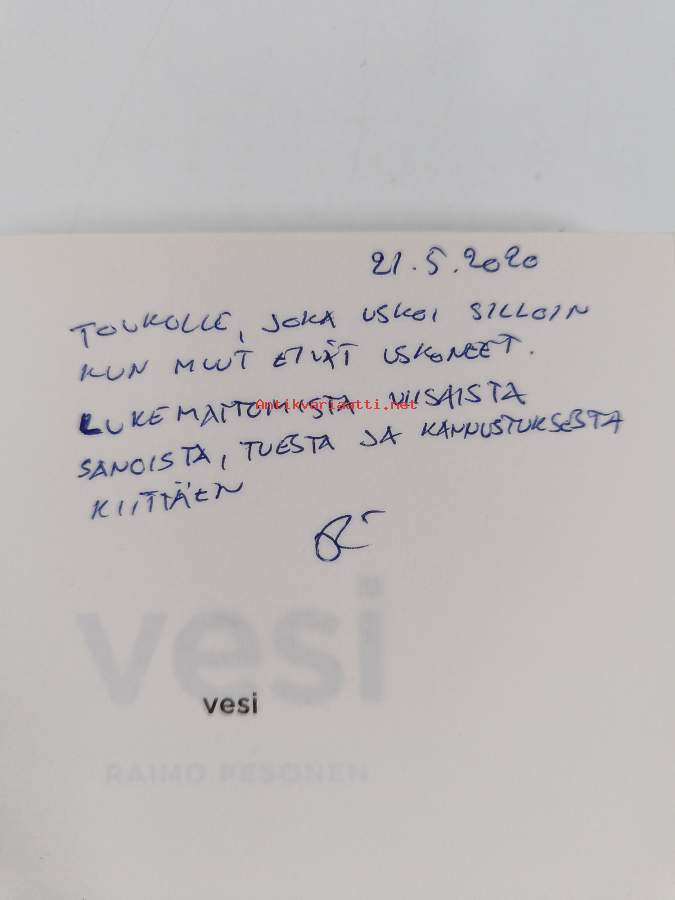 21.5.2020
TOUKOLLE, JOKA USKOI SILLOIN
KUN MUUT EIVÄT USKONEET.
LUKEMATTOMISTA VIISAISTA
Antikvariaatti.net
SANOISTA, TUESTA JA KANNUSTUKSESTA
KIITTÄEN
vesi
vesi
RAIMO PESONEN